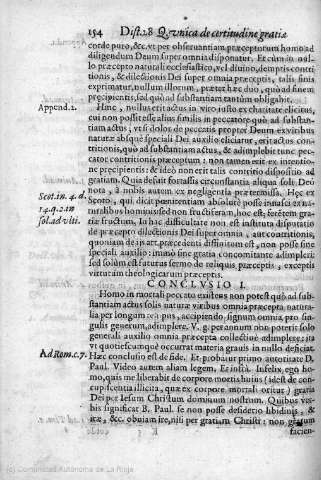 154 Dist. 28 Q. vnica de certitudine gratiæ
corde puro, &c. vt per obseruantiam præceptorum homo ad
diligendum Deum super omnia disponatur. Et cùm in nul-
lo præcepto naturali ecclesiastico, vel diuino, dempto contri-
tionis, & dilectionis Dei super omnia præceptis, talis finis
exprimatur, nullum illorum, præter hæc duo, quòad finem
præcipientis, sed quòad substantiam tantùm obligabit.
Append. 2.
Hinc, nullus erit actus in viro iusto ex charitate elicitus,
cui non possit esse alius similis in peccatore quòad ad substan-
tiam actus, vt si dolor de peccatis propter Deum ex viribus
naturæ absque speciali Dei auxilio eliciatur, erit actus con-
tritionis, quòad substantiam actus, & adimplebit tunc pec-
cator contritionis præceptum: non tamen erit ex intentio-
ne præcipientis; & ideo non erit talis contritio dispositio ad
gratiam. Quia desait forsassis circunstantia aliqua soli Deo
nota, à nobis autem ex negligentia prætermissa. Hęc ex
Scot. in 4. d.
14. q. 2. in
sol. ad vlti.
Scoto, qui dicit pœnitentiam absolutè posse inuasci ex na-
turalibus homini, sed non fructiferam, hoc est, ferętem gra-
tiæ fructum. In hac difficultate non est instituta disputatio
de præceptis dilectionis Dei super omnia, aut contritionis,
quoniam de his
speciali auxilio: immò sine gratia concomitante adimpleri:
sed solùm est futurus sermo de reliquis præceptis, exceptis
virtutum theologicarum præceptis.
CONCLVSIO I.
Homo in mortali peccato existens non potest quòad sub-
stantiam actus solis naturæ viribus omnia præcepta natura-
lia per longum tempus, accipiendo signum omnia, pro sin-
gulis generum, adimplere. V. g. per annum non poterit solo
generali auxilio omnia præcepta collectiuè adimplere: ita
vt quotiescumque occurrat materia grauis in nullo deficiat.
Ad Rom. c. 7.
Hæc conclusio est de fide. Et probatur primo autoritate D.
Paul. Video autem aliam legem, Et infra. Infelix, ego ho-
mo, quis me liberabit de corpore mortis huius (idest de con-
cupiscentia illicita, quæ ex corpore mortali oritur) gratia
Dei per Iesum Christum dominum nostrum. Quibus ver-
bis significat B. Paul. se non posse desiderio libidinis, &
iræ, &c. obuiam ire, nisi per gratiam Christi: non gratum
facien-
(c) Comunidad Autónoma de La Rioja